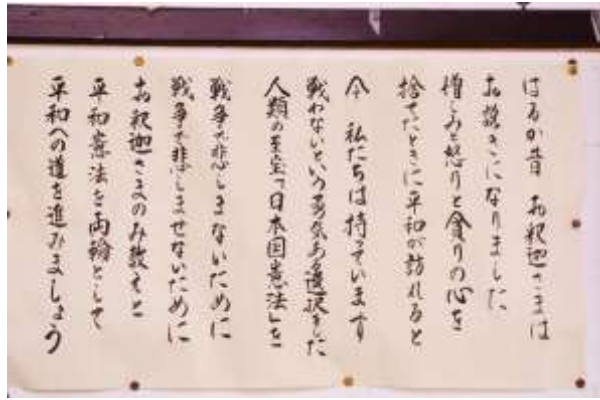 はるか昔　お釈迦さまは
お説きになりました
憎しみと怒りと貪りの心を
捨てたときに平和が訪れると
今　私たちは持っています
戦わないという勇気ある選択をした
人類の至宝「日本国憲法」を
戦争で悲しまないために
戦争で悲しませないために
お釈迦さまのみ教えと
平和憲法を両輪として
平和への道を進みましょう